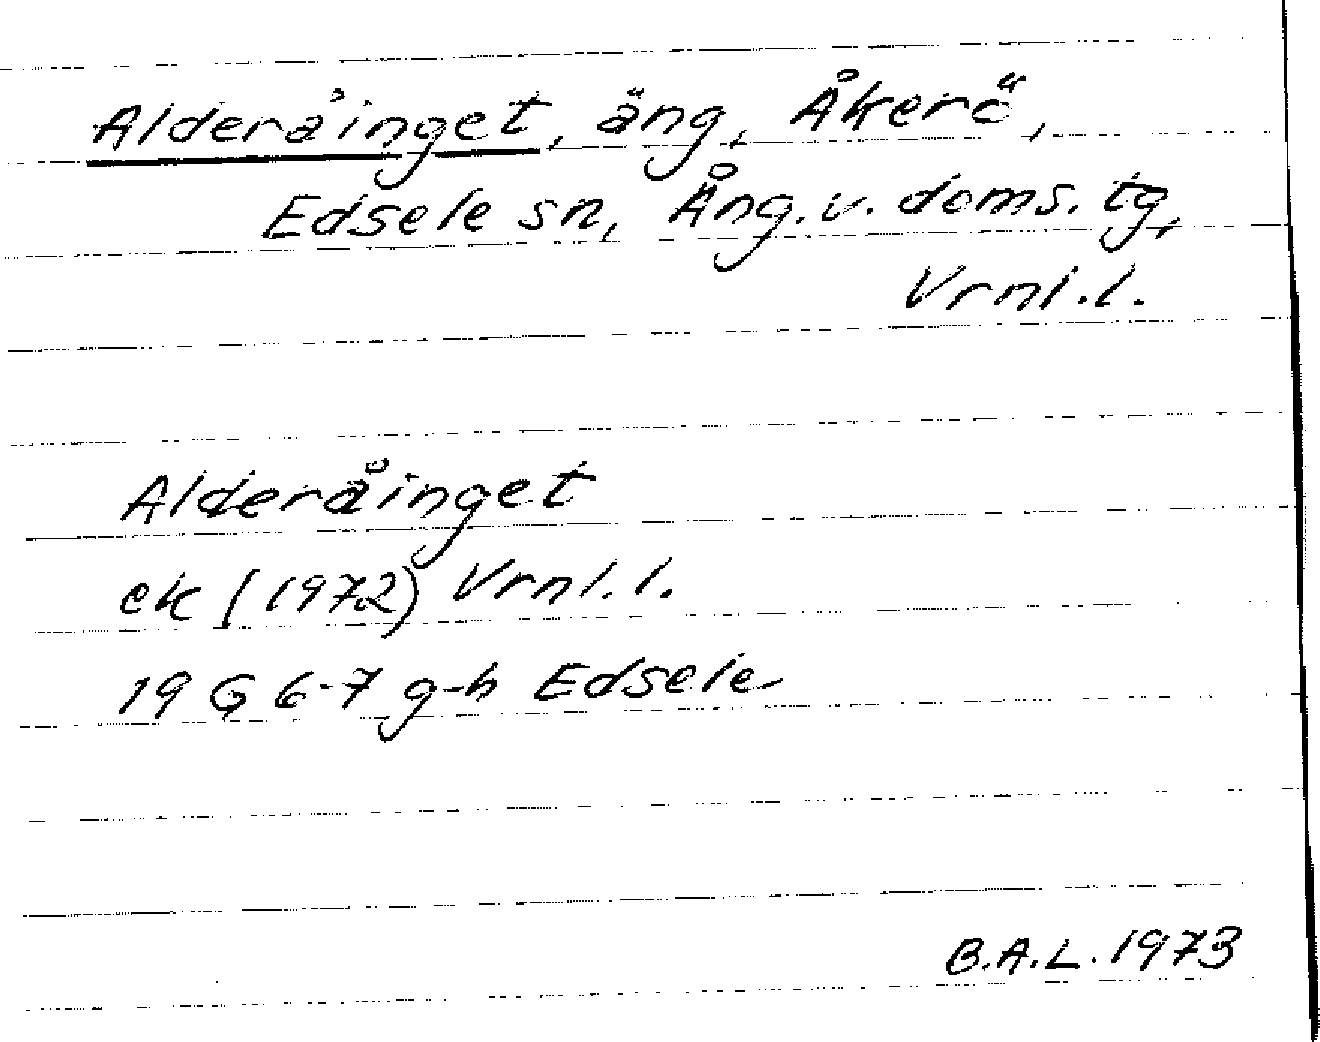 Alderåinget, äng, Åkerö,
Edsele sn, Ång. v. doms. tg,
Vrnl. l.
Alderåinget
ek (1972) Vrnl. l.
19 G 6-7 g-h Edsele
B.A.L. 1973